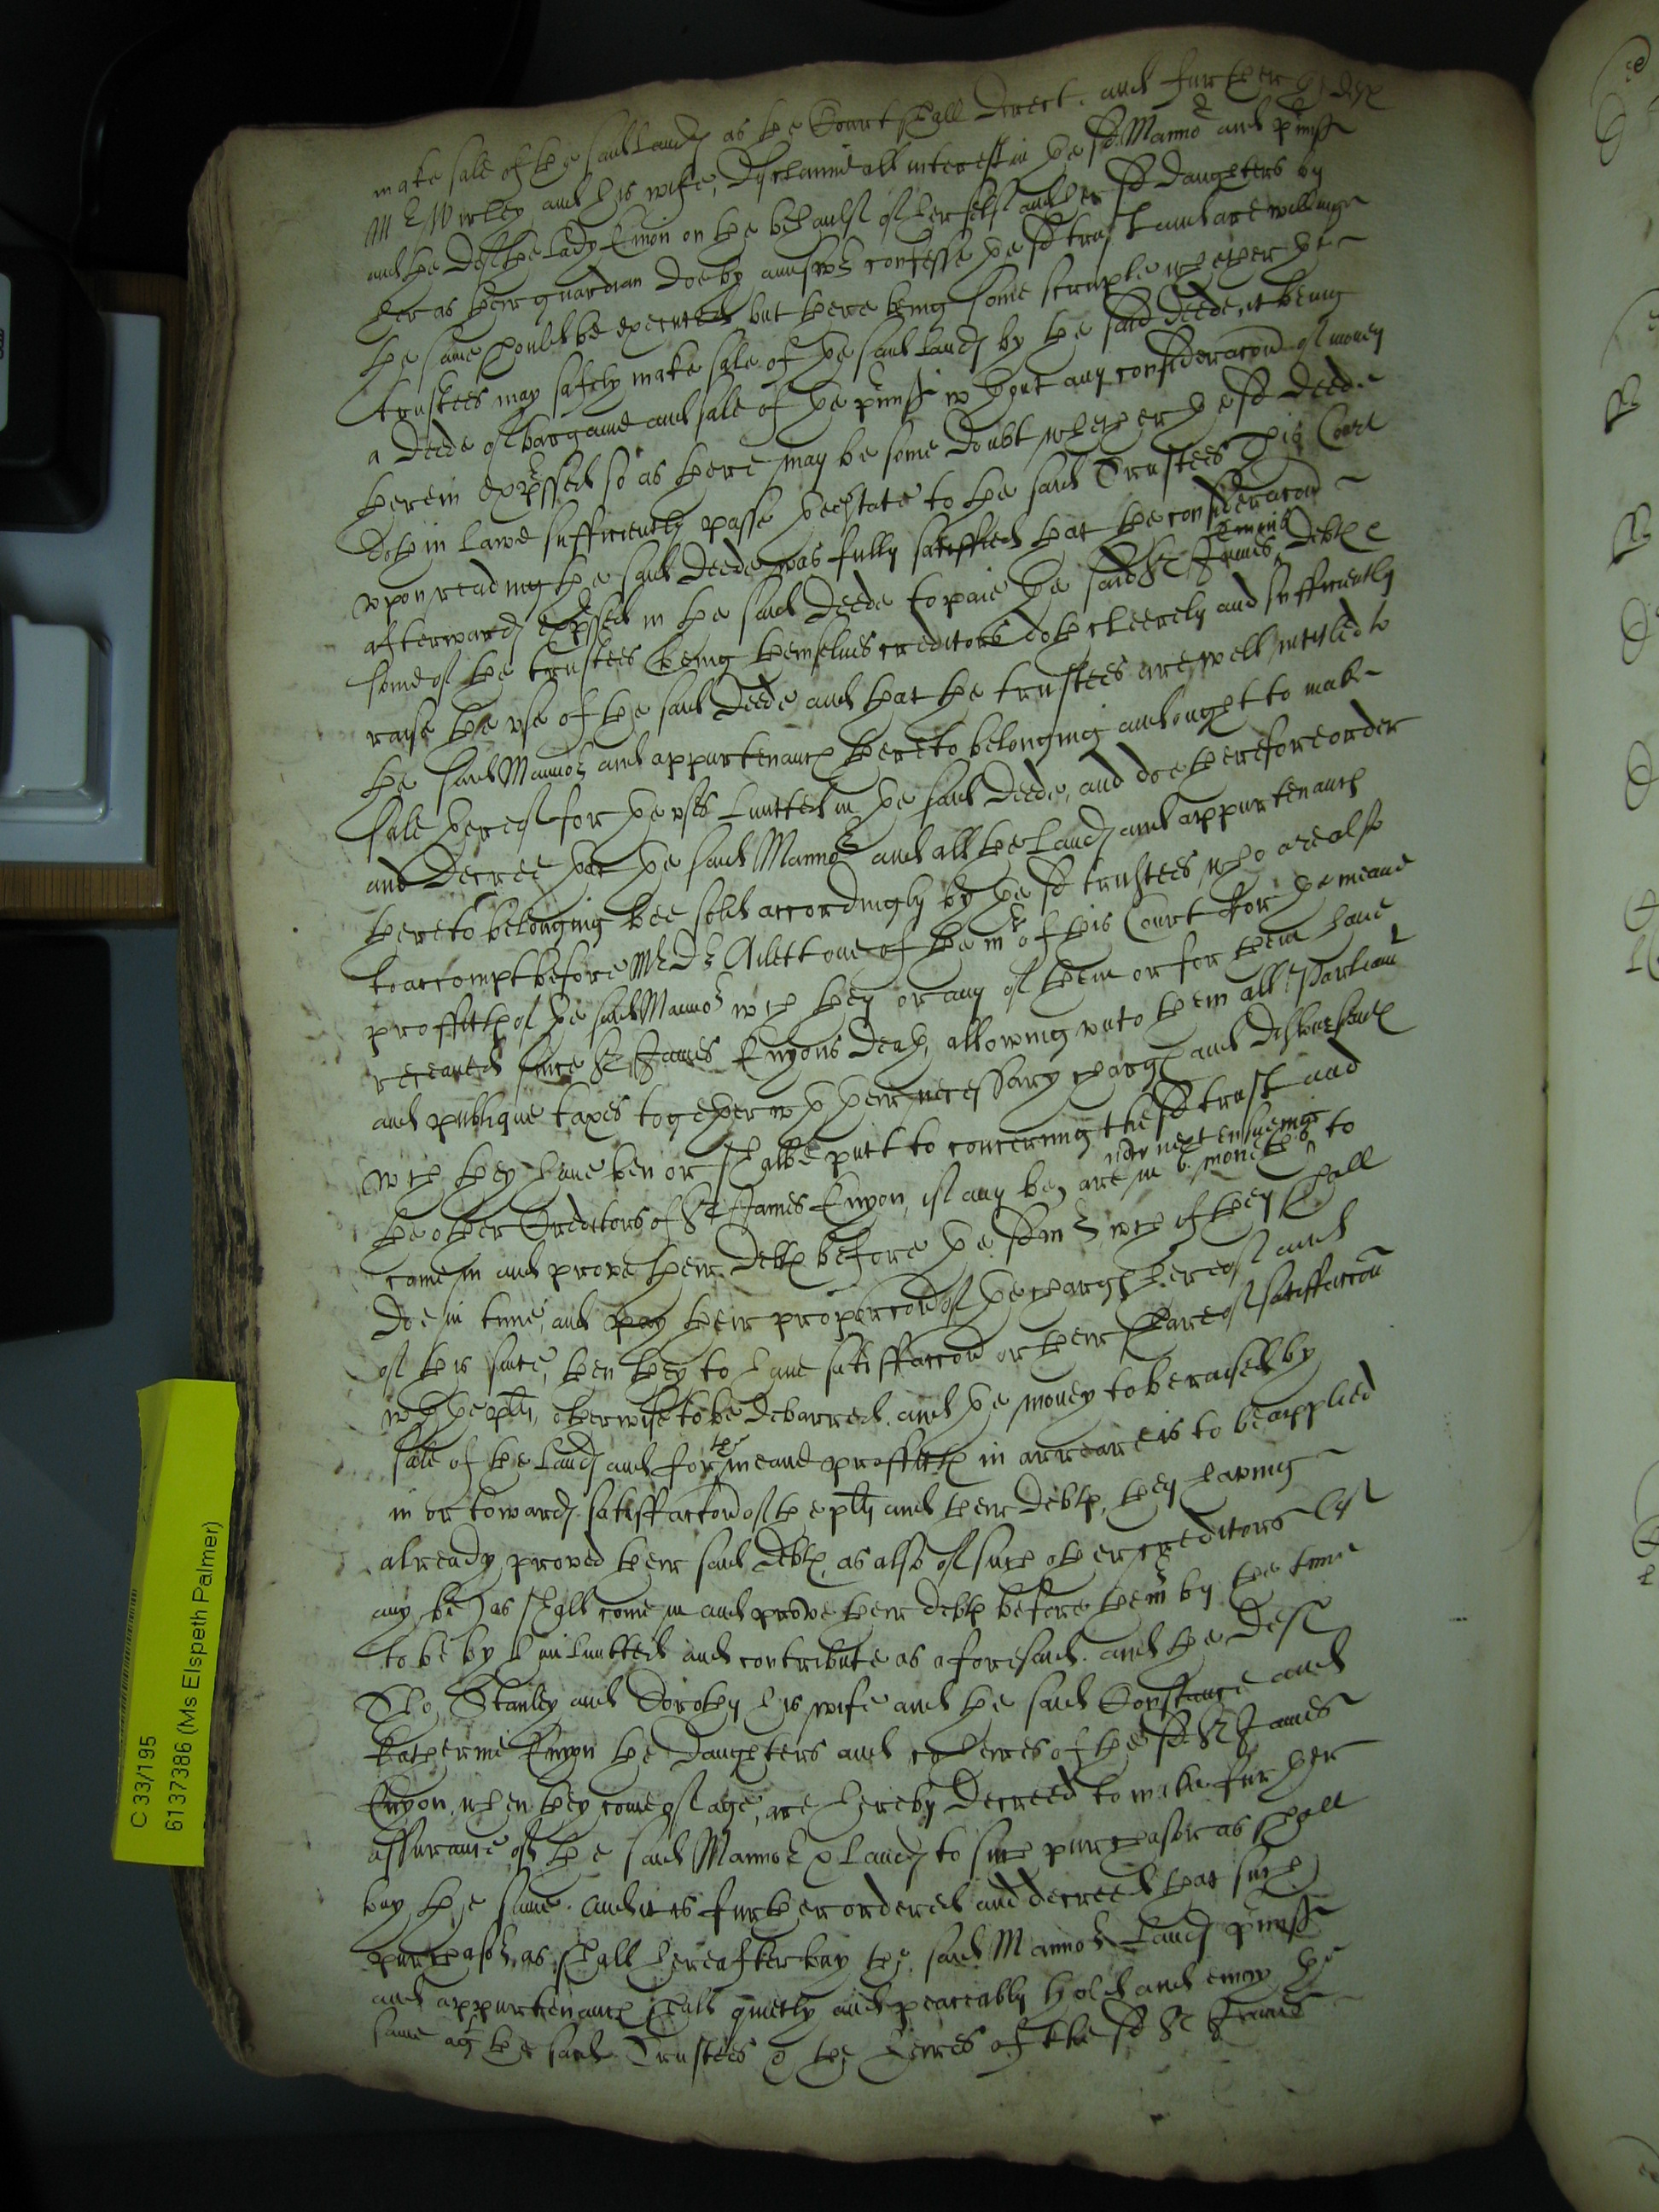 make sale of the said lands as the Court shall direct. and further the deft
Mr Wirley and his wife, disclaime all interest in the sd. Manno:r and p'misses
and the deft the Lady Enion on the behaulf of herself and her sd daughters by
her as their guardian doe by answ:r confesse the sd trust and are willing
the same should be executed but there being some scruple whether the
trustees may safely make sale of the said lands by the said deede, it being
a deede of bargaine and sale of the p'misses w:thout any consideracon of money
therein expressed so as there may be some doubt whether the sd deede
doth in lawe sufficiently passe the estate to the said Trustees This Court
vpon reading the said deede was fully satisfied that the consideracon
afterwards expssed in the said deede to paie the said Sr James Enions debts
some of the trustees being themselues creditors doth cleerely and sufficiently
raise the vse of the said deede and that the trustees are well intitled to
the said Manno:r and appurtenancs thereto belonging and ought to make
sale thereof for the vses limitted in the said deede, and doe therefore order
and decree that the said Manno:r and all the lands and appurtenancs
thereto belonging bee sold accordingly by the sd trustees, who are also
to accompt before Mr Dr Ailett one of the mr of this Court for the meane
proffitts of the said Manno:r wch they or any of them or for them haue
receaued since Sr James Enyons death, allowing vnto them all Parliamt
and publique taxes together wth their necessary chargs and disbursmts
wch they haue ben or shalbe putt to concerning the sd trust and
the other Creditors of Sr James Enyon, if any be, are in 6 moneths now next ensueing to
come in and prove their debts before the sd mr, wch if they shall
doe in time, and pay their proporcon of the chargs hereof and
of this suite, then they to haue satisfaccon or their share of satisfaccon
wth the plts, otherwise to be debarred. and the money to be raised by
sale of the lands and for the meane proffitts in arreare is to be applied
in or towards satisfaccon of the plts and their debts, they having
already proved their said debts, as also of such other creditors (if
any be) as shall come in and prove their debts before the mr by the time
to be by him limitted and contribute as aforesaid. and the deft
Tho: Stanley and Dorothy his wife and the said Constance and
Katherine Enyon the daughters and coheires of the sd Sr James
Enyon, when they come of age, are hereby decreed to make further
assurance of the said Manno:r & lands to such purchasor as shall
buy the same. and it is further ordered and decreed that such
purchaso:r, as shall hereafter buy the said Manno:r lands p'misses
and appurtenancs shall quietly and peaceably hold and enioy the
same agt the said Trustees & the heires of the sd Sr James
C 33/195
6137386 (Ms Elspeth Palmer)